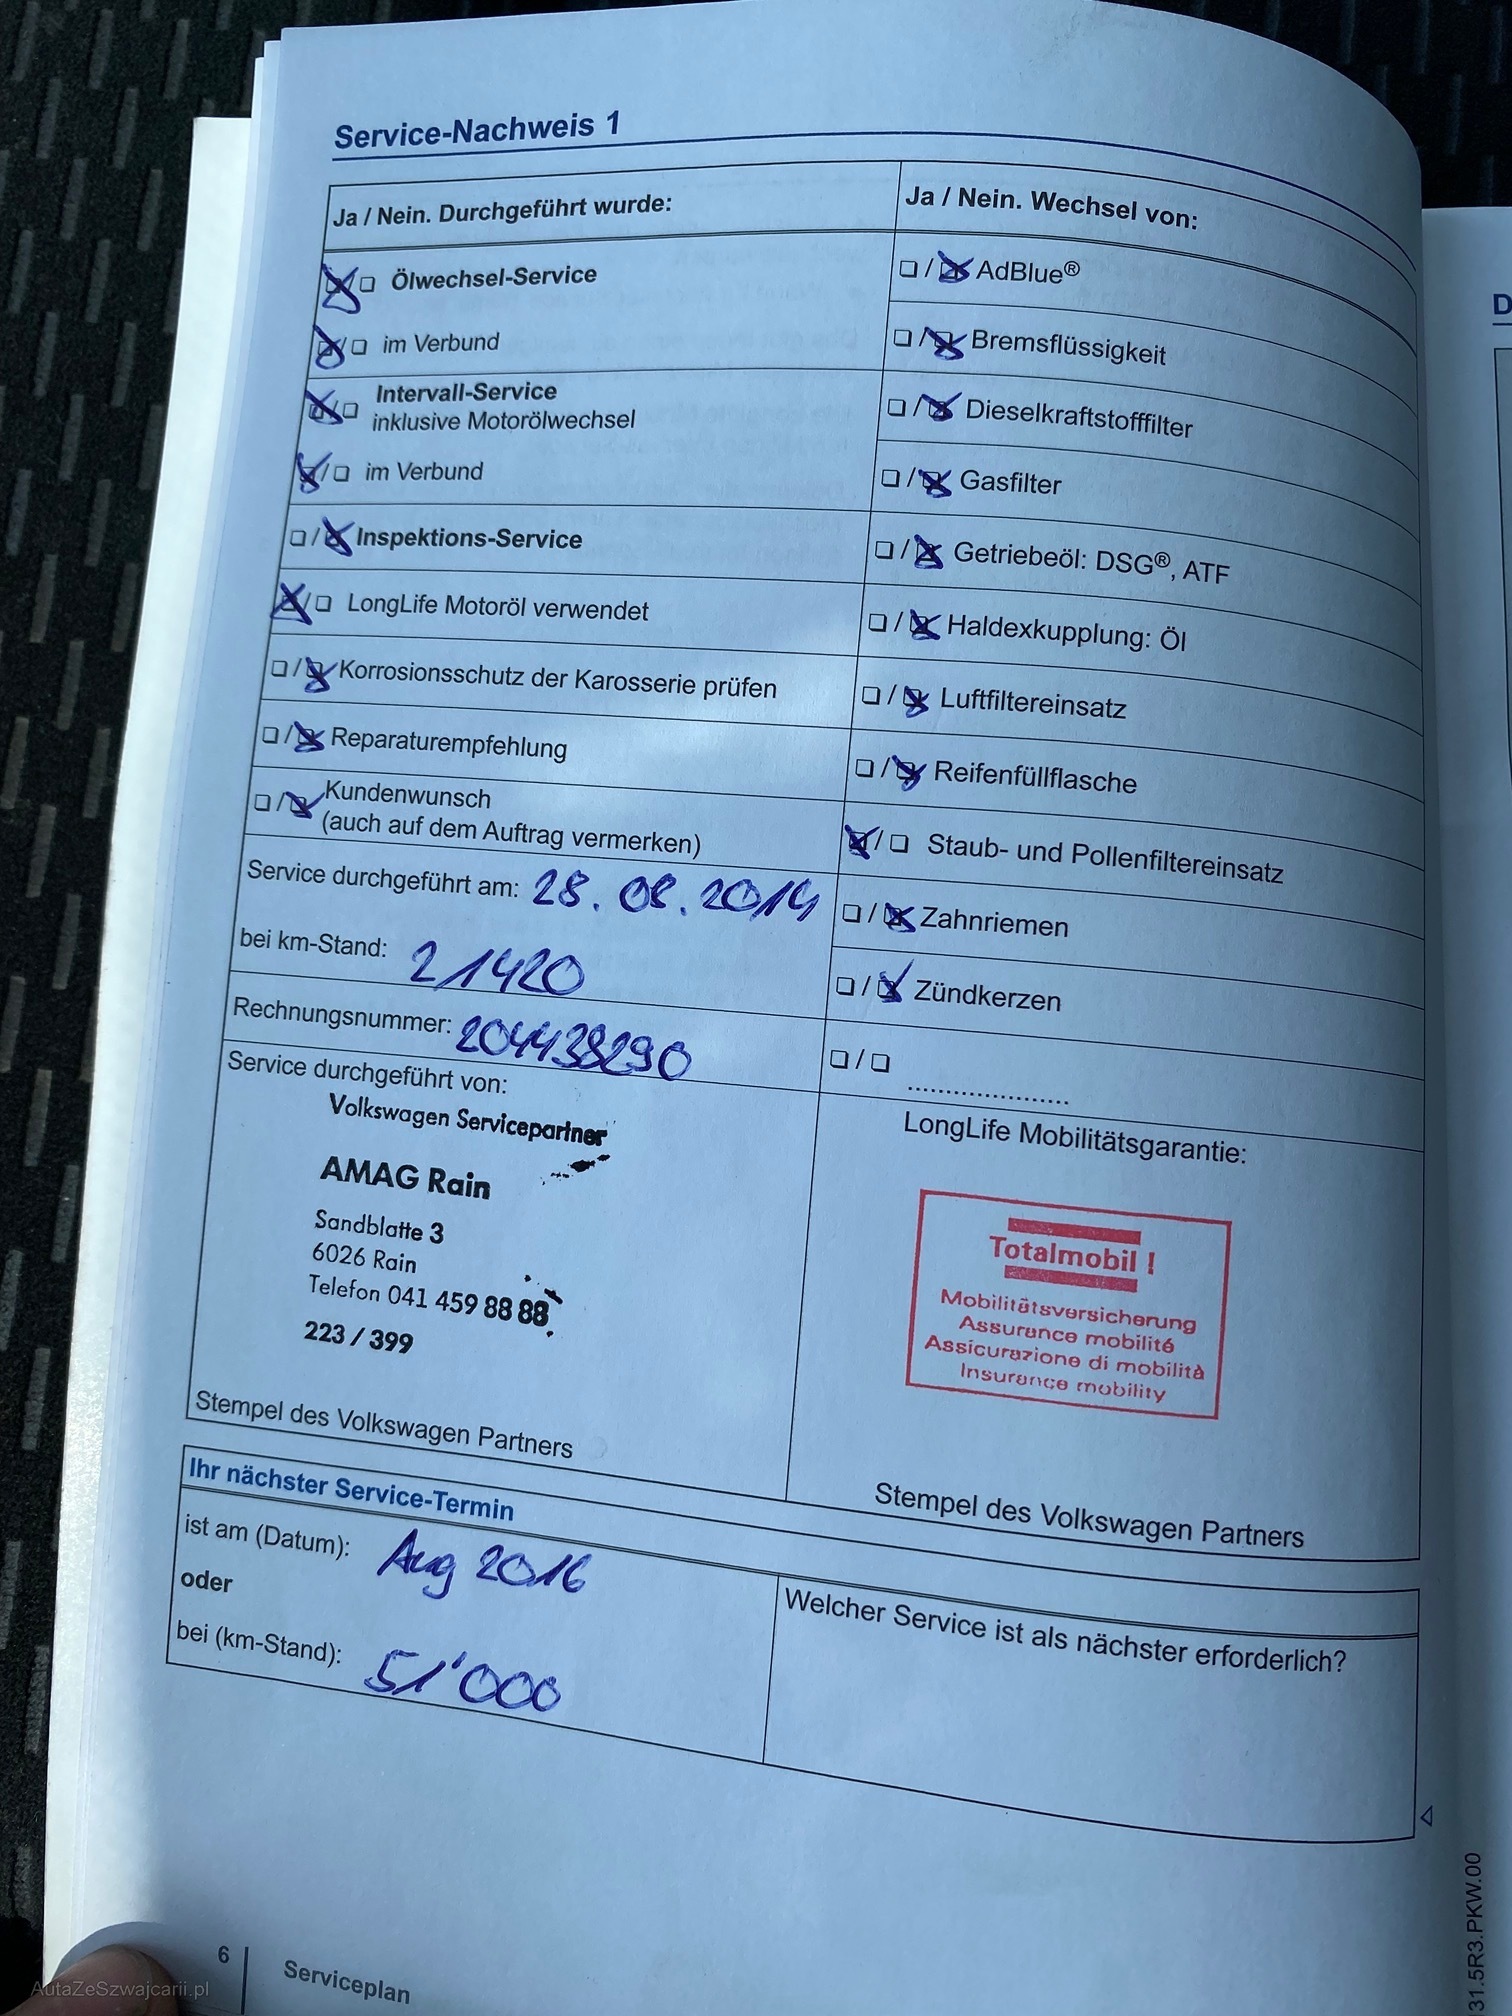 Service-Nachweis 1
Ja / Nein. Durchgeführt wurde:
☒/☐ Ölwechsel-Service
☒/☐ im Verbund
☒/☐ Intervall-Service
inklusive Motorölwechsel
☒/☐ im Verbund
☐/☒ Inspektions-Service
☒/☐ LongLife Motoröl verwendet
☐/☒ Korrosionsschutz der Karosserie prüfen
☐/☒ Reparaturempfehlung
☐/☒ Kundenwunsch
(auch auf dem Auftrag vermerken)
Service durchgeführt am: 28.08.2014
bei km-Stand: 21420
Rechnungsnummer: 204438290
Service durchgeführt von:
Volkswagen Servicepartner
AMAG Rain
Sandblatte 3
6026 Rain
Telefon 041 459 88 88
223 / 399
Stempel des Volkswagen Partners
Ja / Nein. Wechsel von:
☐/☒ AdBlue®
☐/☒ Bremsflüssigkeit
☐/☒ Dieselkraftstofffilter
☐/☒ Gasfilter
☐/☒ Getriebeöl: DSG®, ATF
☐/☒ Haldexkupplung: Öl
☐/☒ Luftfiltereinsatz
☐/☒ Reifenfüllflasche
☒/☐ Staub- und Pollenfiltereinsatz
☐/☒ Zahnriemen
☐/☒ Zündkerzen
☐/☐ ......................
LongLife Mobilitätsgarantie:
Totalmobil !
Mobilitätsversicherung
Assurance mobilité
Assicurazione di mobilità
Insurance mobility
Stempel des Volkswagen Partners
Ihr nächster Service-Termin
ist am (Datum): Aug 2016
oder
bei (km-Stand): 51'000
Welcher Service ist als nächster erforderlich?
6
Serviceplan
31.5R3.PKW.00
D
AutaZeSzwajcarii.pl